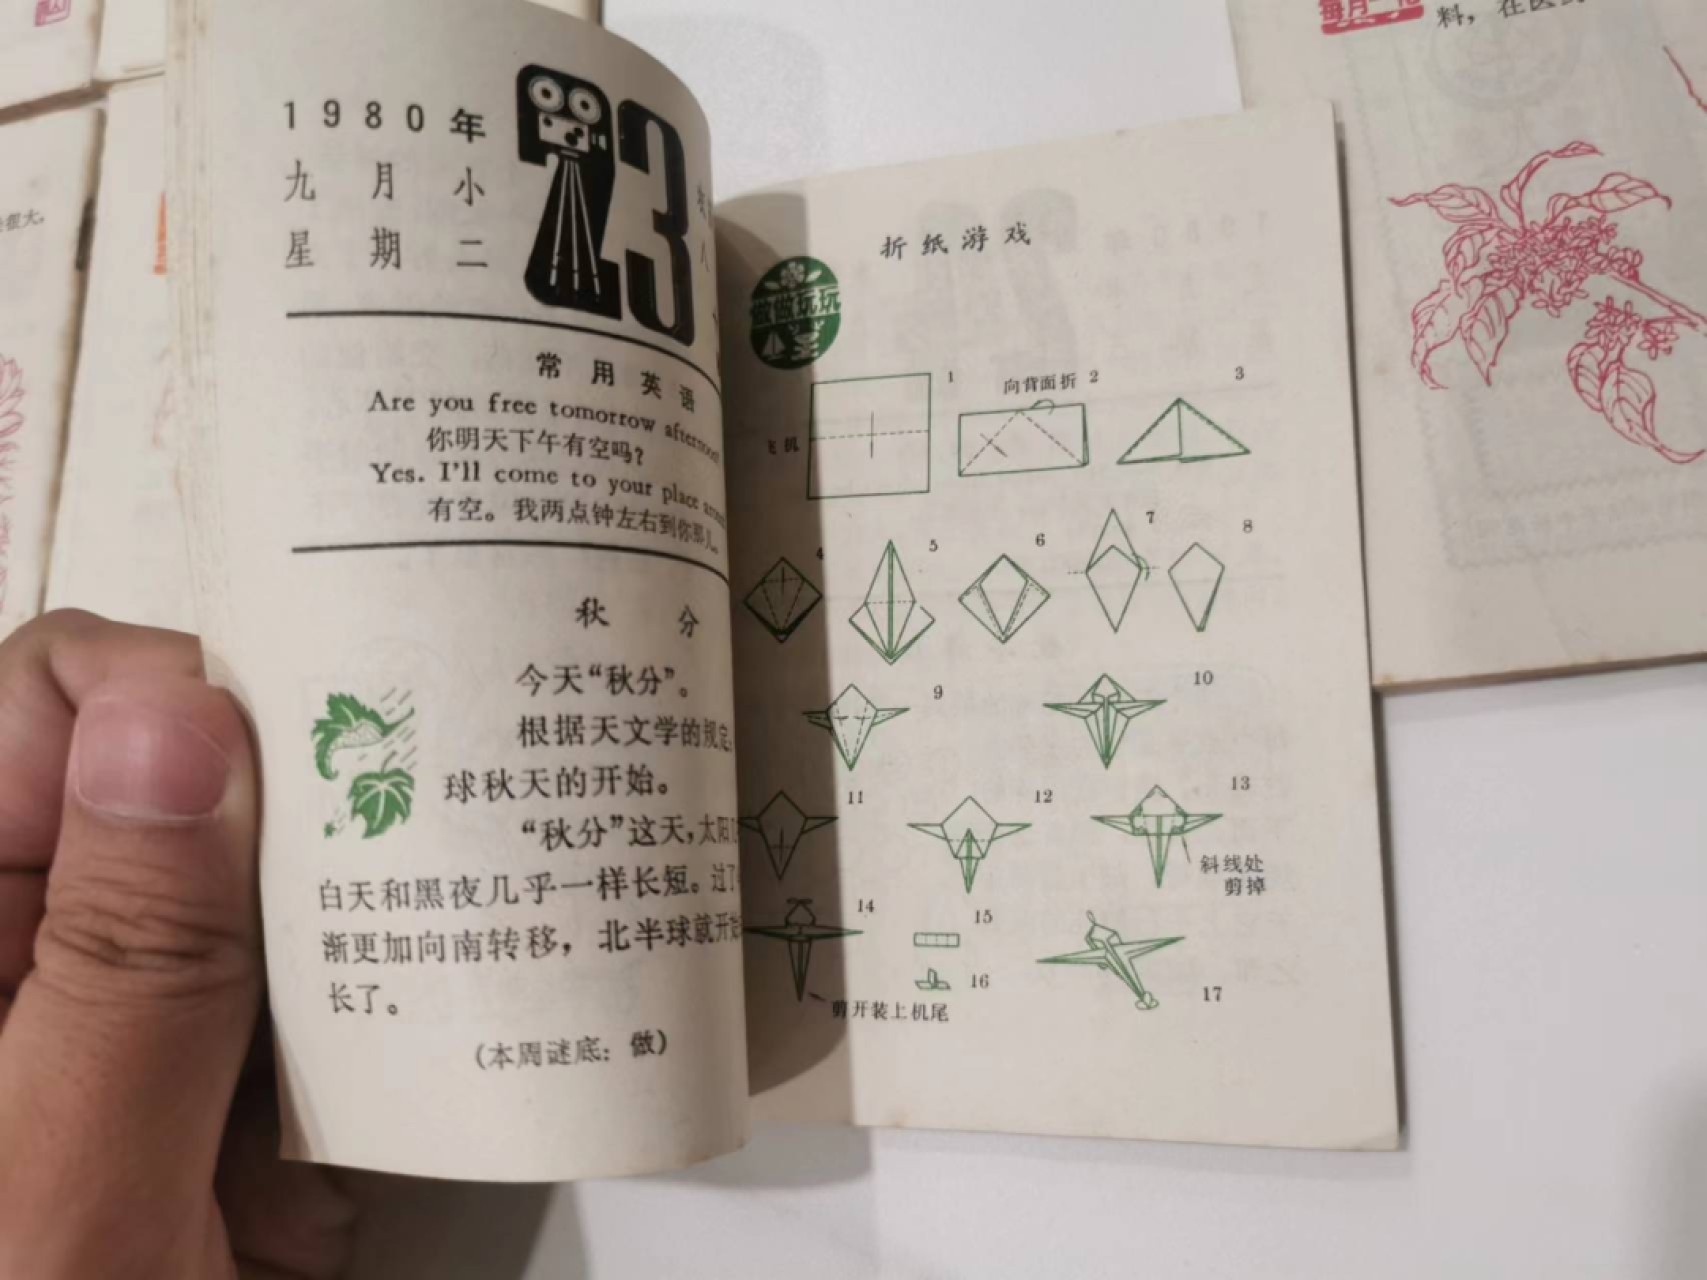 1980年
九月小
星期二
23
八
常用英语
Are you free tomorrow afternoon?
你明天下午有空吗?
Yes. I'll come to your place
有空。我两点钟左右到你那儿
秋分
今天“秋分”。
根据天文学的规定,
球秋天的开始。
“秋分”这天,太阳
白天和黑夜几乎一样长短。过了
渐更加向南转移，北半球就开始
长了。
(本周谜底：做)
折纸游戏
做做玩玩
飞机
1
向背面折 2
3
4
5
6
7
8
9
10
11
12
13
斜线处
剪掉
14
15
16
17
剪开装上机尾
很大,
每月一花
料，在医